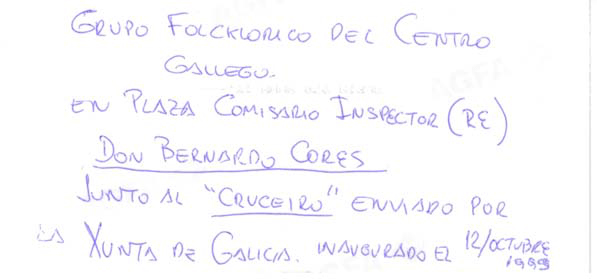 GRUPO FOLCKLORICO DEL CENTRO
GALLEGO.
EN PLAZA COMISARIO INSPECTOR (RE)
DON BERNARDO CORES
JUNTO AL "CRUCEIRO" ENVIADO POR
LA XUNTA DE GALICIA. INAUGURADO EL 12/OCTUBRE
1999